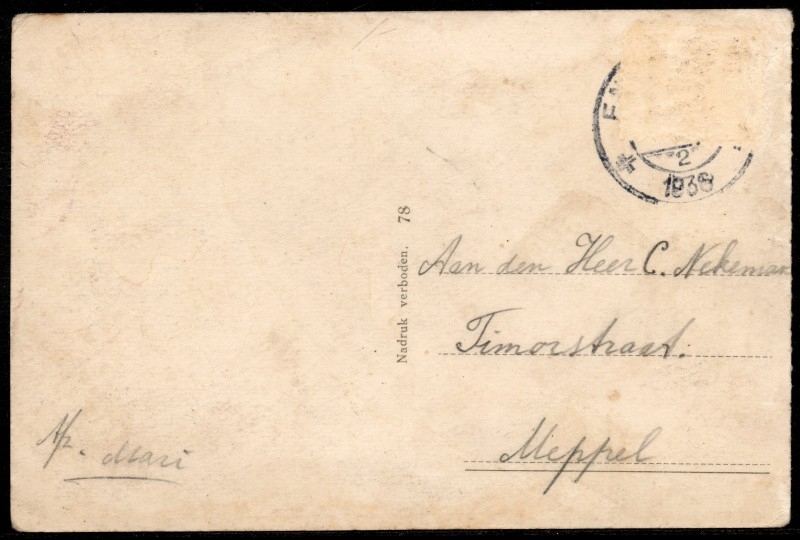 2
1936
Nadruk verboden. 78
Aan den Heer C. Nekeman
Timorstraat.
Meppel
Afz. Mari